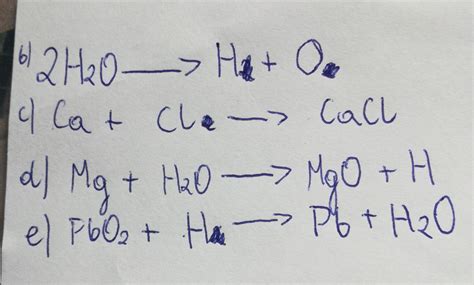 b) 2H2O → H2 + O2
c) Ca + Cl2 → CaCl
d) Mg + H2O → MgO + H
e) PbO2 + H2 → Pb + H2O